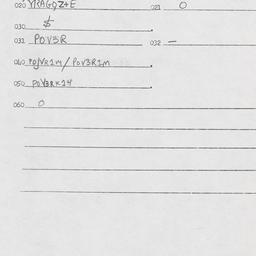 020 YRAGOZ+E 021 0
030 $
031 POV3R 032 —
040 POJVR1M/POV3R1M
050 POV3RK14
060 0